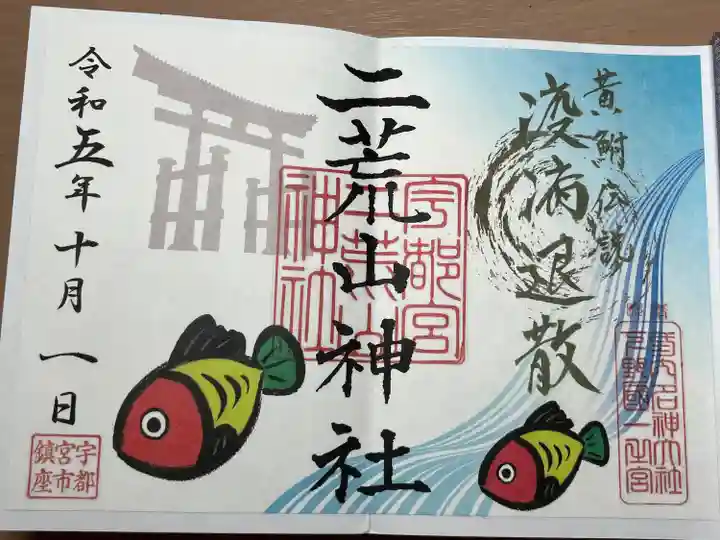 黄鮒伝説
疫病退散
二荒山神社
宇都宮
二荒山
神社
令和五年十月一日
宇都
宮市
鎮座
名神大社
下野國一之宮